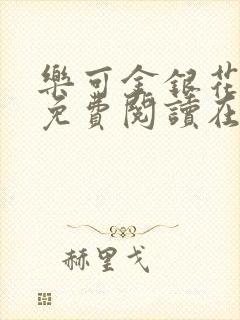 樂可金銀花
免費閱讀在
赫里戈